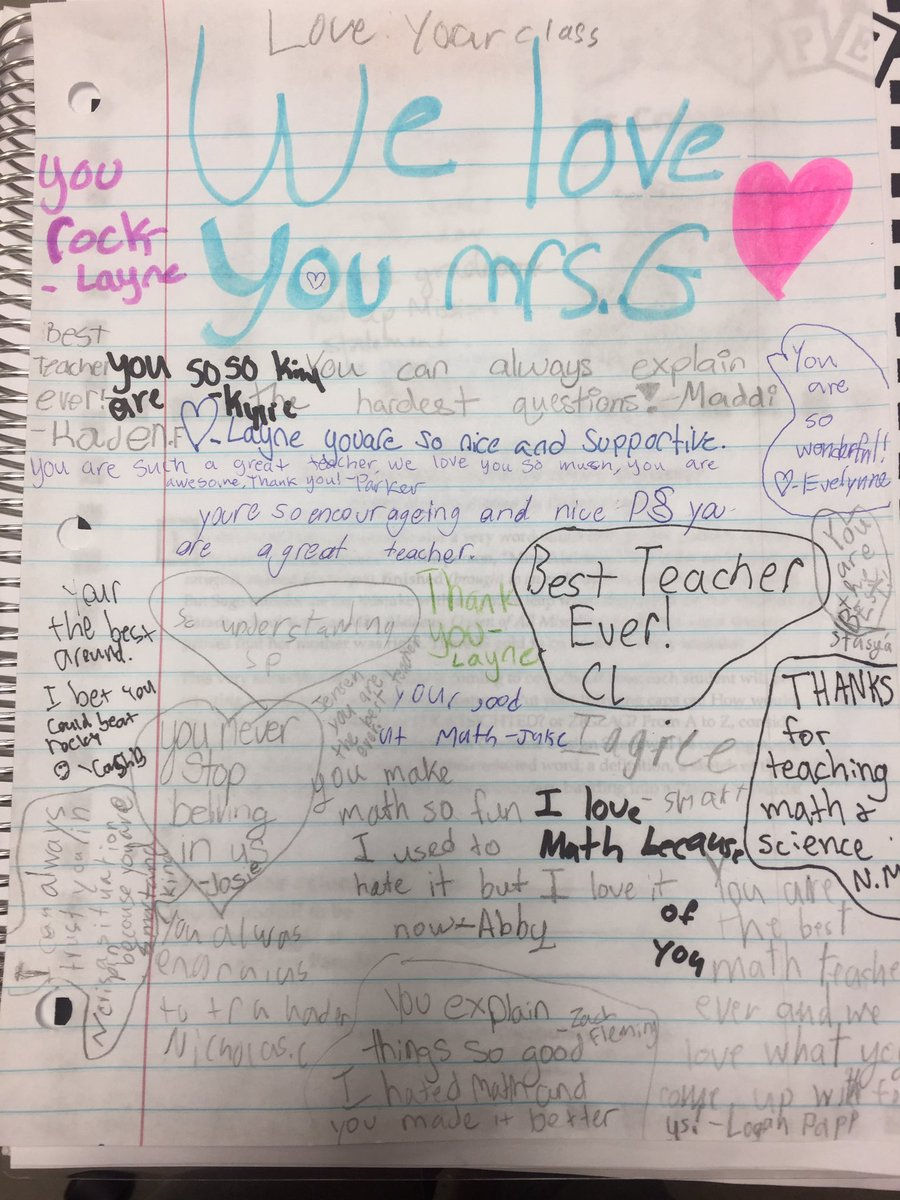 Love Your class
We love
You mrs.G
You
rock
- Layne
Best
Teacher
ever!
-Kaden.F
you so so kind
are -Kyrie
You can always explain
the hardest questions! -Maddi
You
are
so
wonderful!
♡-Evelynne
♡-Layne you are so nice and supportive.
You are such a great teacher, we love you so much, you are
awesome, Thank you! -Parker
youre so encourageing and nice PS ya
are a great teacher.
Your
the best
around.
I bet you
could beat
rocky
☺ -Cash B
So understanding
SP
Thank
you-
Layne
Best Teacher
Ever!
CL
You
are
the
BEST
Stasya
Jensen
you are
the best teacher
ever
your good
at Math -Jake
I agree
- smart
THANKS
for
teaching
math &
science.
N.M
you never
Stop
beliving
in us
-Josie
you make
math so fun
I used to
hate it but I love it
now -Abby
I love
Math because
of
you
you can always
trust you in
any situation
because you are
smart and
kind
You always
to try harder
Nicholas.C
You explain
things so good
I hated Math and
you made it better
-Zach
Fleming
You are
the best
math teacher
ever and we
love what you
come up with
us! -Logan Papp